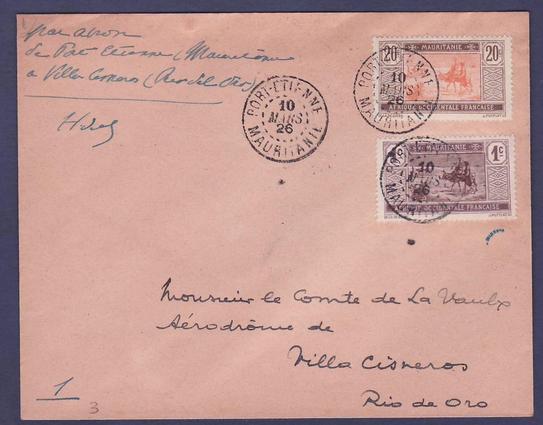 par avion
de Port Etienne (Mauritanie
a Villa Cisneros (Rio del Oro)
20c MAURITANIE 20c
AFRIQUE OCCIDENTALE FRANÇAISE
PORT-ETIENNE
10
MARS
26
MAURITANIE
PORT-ETIENNE
10
MARS
26
MAURITANIE
MAURITANIE 1c
AFRIQUE OCCIDENTALE FRANÇAISE
10
MARS
26
Monsieur le Comte de La Vaulx
Aérodrôme de
Villa Cisneros
Rio de Oro
1
3